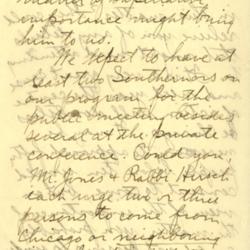 importance might bring
him to us.
We expect to have at
least two Southerners on
our program for the
public meeting besides
several at the private
conference. Could you,
Mr Jones & Rabbi Hirsch
each urge two or three
persons to come from
Chicago or neighboring